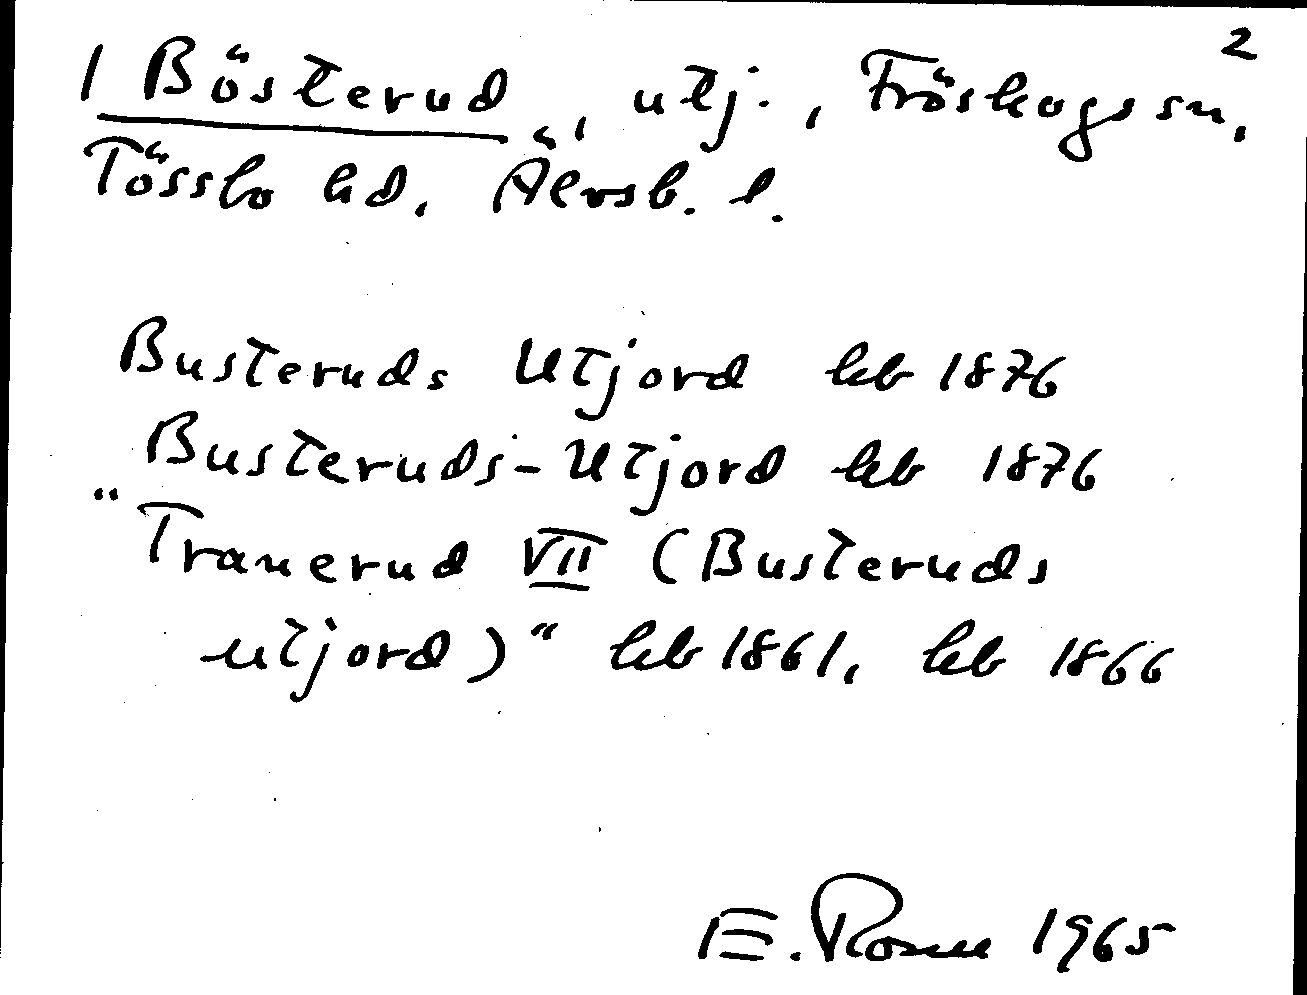 2
1 Bösterud, utj., Fröskogs sn,
Tössbo hd, Älvsb. l.
Busteruds Utjord kb 1876
Busteruds-Utjord kb 1876
"Tranerud VII (Busteruds
utjord)" kb 1861, kb 1866
E. Rosen 1965